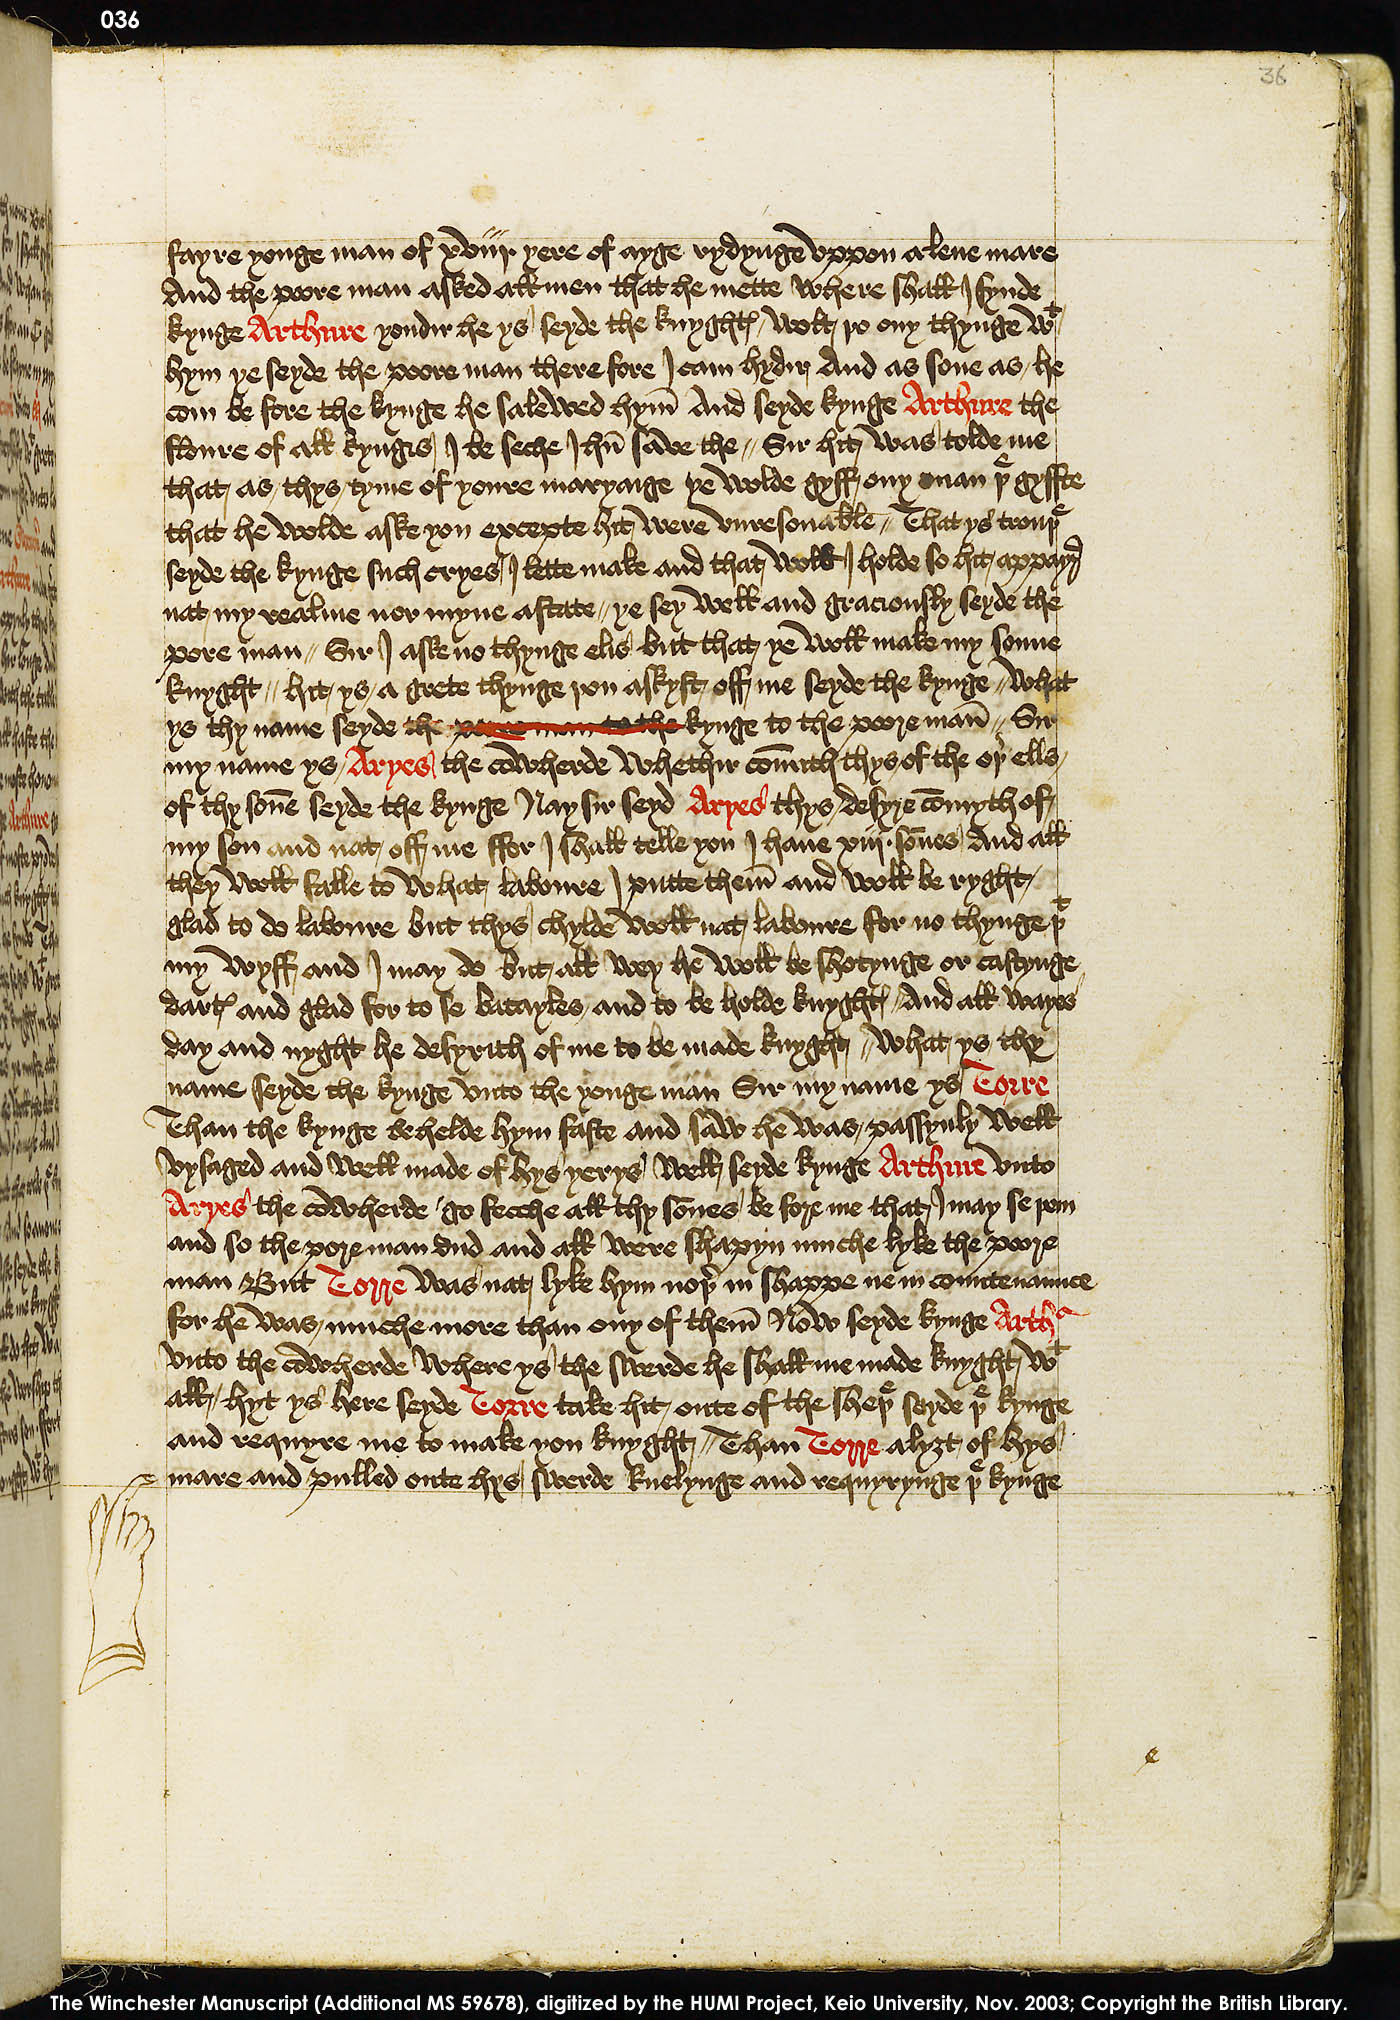 036
36
fayre yonge man of xviij yere of ayge rydynge vppon a lene mare
And the poore man asked all men that he mette where shall I fynde
kynge Arthure yondir he ys seyde the knyghtes wolt þo ony thynge wt
hym ye seyde the poore man there fore I cam hydir And as sone as he
com be fore the kynge he salewed hym̄ And seyde kynge Arthure the
floure of all kyngis I be seche Ihū save the // Sir hit was tolde me
that as thys tyme of youre maryaige ye wolde gyff ony man þe gyffte
that he wolde aske you excepte hit were vnresonable // That ys trouþe
seyde the kynge such cryes I lette make and that woll I holde so hit appayre
nat my realme nor myne astate // ye sey well and graciously seyde the
pore man // Sir I aske no thynge elis but that ye woll make my sonne
knyght // hit ys a grete thynge þou askyst off me seyde the kynge // What
ys thy name seyde the poore man to the kynge to the poore man̄ // Sir
my name ys Aryes the cowherde whethir com̄ith thys of the oþer ells
of thy son̄e seyde the kynge Nay sir seyd Aryes thys desyre com̄yth of
my son and nat off me ffor I shall telle you I haue xiij son̄es And all
they woll falle to what laboure I putte them̄ and woll be ryght
glad to do laboure but thys chylde woll nat laboure for no thynge þt
my wyff and I may do but all wey he woll be shotynge or castynge
dartes and glad for to se batayles and to be holde knyghtes And all wayes
day and nyght he desyrith of me to be made knyght // What ys thy
name seyde the kynge vnto the yonge man Sir my name ys Torre
Than the kynge behelde hym faste and saw he was passyngly well
vysaged and well made of hys yerys Well seyde kynge Arthure vnto
Aryes the cowherde go fecche all thy son̄es be fore me that I may se þem
and so the pore man dud and all were shapyn muche lyke the poore
man But Torre was nat lyke hym noþer in shappe ne in countenaunce
for he was muche more than ony of them̄ Now seyde kynge Arthur
vnto the cowherde where ys the swerde he shall me made knyght wt
all hyt ys here seyde Torre take hit oute of the sheþe seyde þe kynge
and requyre me to make you knyght // Than Torre alyȝt of hys
mare and pulled oute hys swerde knelynge and requyrynge þe kynge
The Winchester Manuscript (Additional MS 59678), digitized by the HUMI Project, Keio University, Nov. 2003; Copyright the British Library.